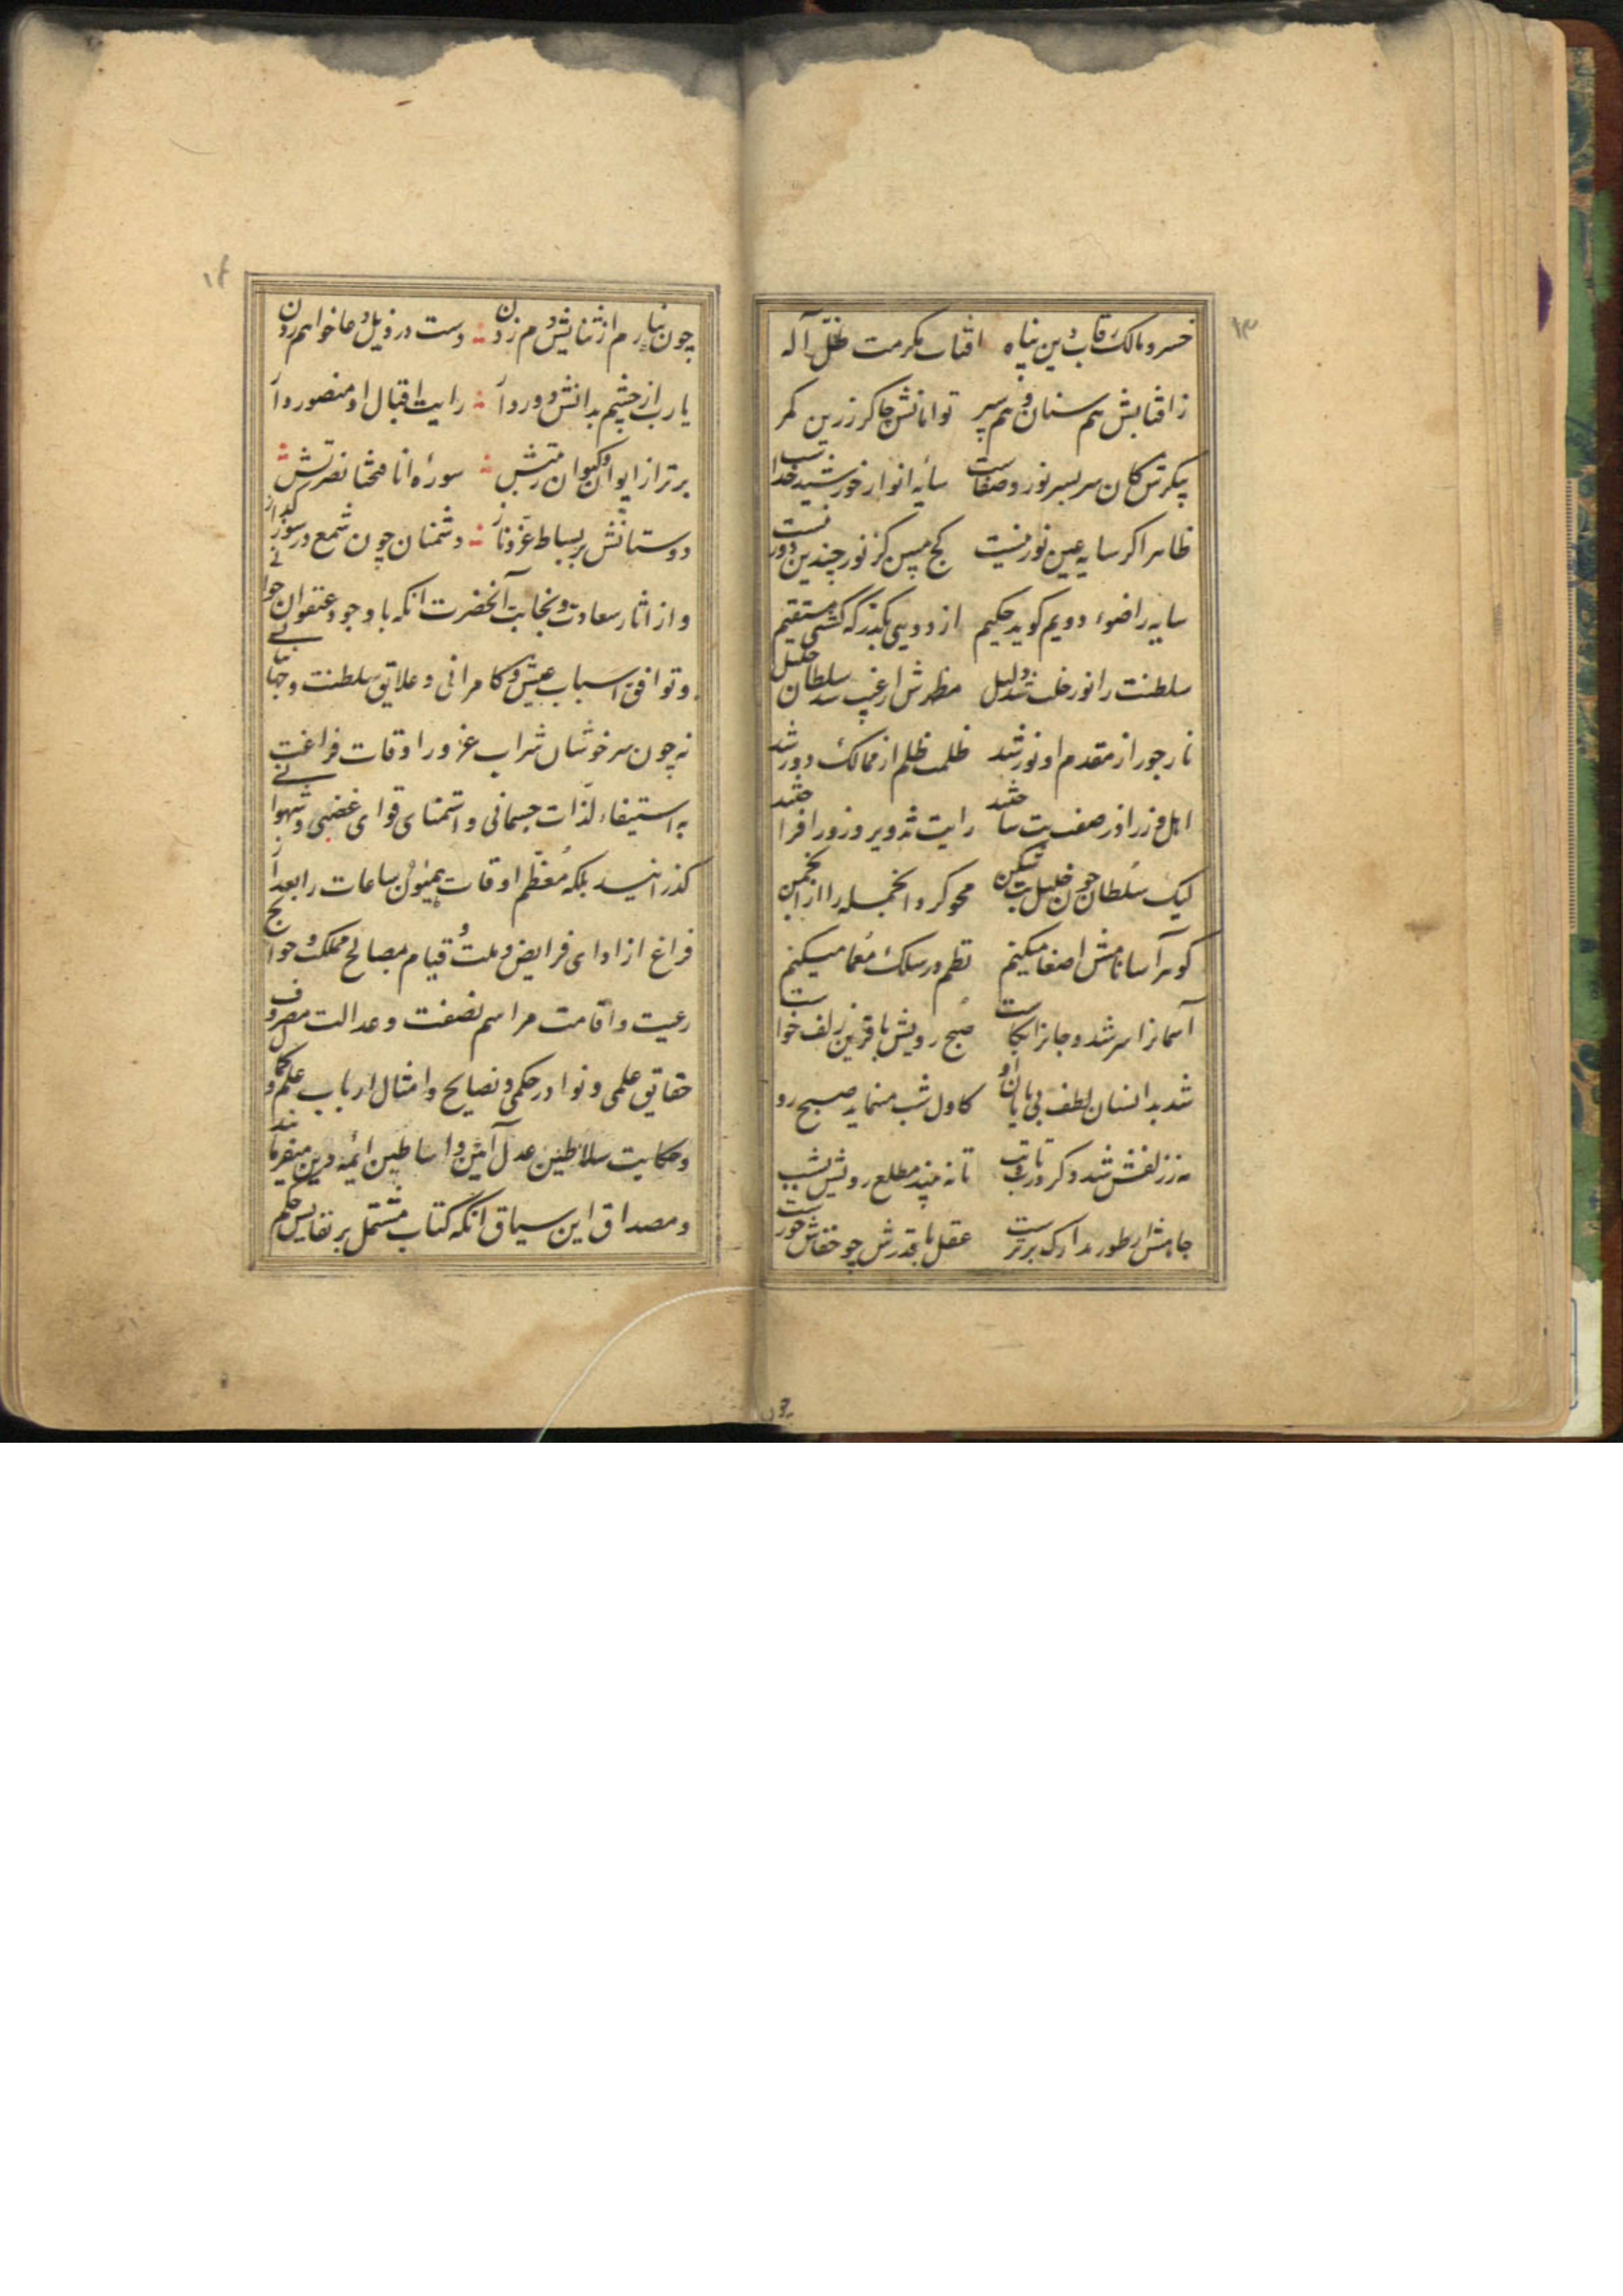 ۱۳
خسرو مالک رقاب دین پناه افتاب مکرمت ظل آله
ز افتابش هم سنان و هم سپر توامانش چاکر زرین کمر
پیکرش کان سر بسر نور و صفاست سایه انوار خورشید خداست
ظاهرا کر سایه عین نور نیست کج مبین کز نور چندین دور نیست
سایه را ضوء دویم کوید حکیم از دوییی بکذر که کشتی مستقیم
سلطنت را نور خلت شد دلیل مظهرش از غیب سلطان خلیل
نار جور از مقدم او نور شد ظلمت ظلم از ممالک دور شد
اهل زر از صف بت ساختند رایت تزویر و زور افراختند
لیک سلطان چون خلیل بت شکن محو کرد انجمله را از انجمن
کوهر آسا نامش اصغا میکنم نظم در سلک معما میکنم
آسمانرا سر شد و جانرا بکاست صبح رویش با قرین زلف خواست
شد بدانسان لطف بی پایان او کاول شب مینماید صبح رو
مه ز زلفش شد دکر در تاب و تب تا نه بیند مطلع رویش بشب
جاهش از طور مدارک برترست عقل با قدرش چو خفاش خورست
چون
۱۴
چون نیارم از ثنایش دم زدن دست در ذیل دعا خواهم زدن
یا رب از چشم بدانش دور دار رایت اقبال او منصور دار
برتر از ایوان کیوان رتبتش سوره انا فتحنا نصرتش
دوستانش بر بساط عز و ناز دشمنان چون شمع در سوز و کداز
و از اثار سعادت و نجابت آنحضرت انکه با وجود عنفوان جوانی
و توافق اسباب عیش و کامرانی و علایق سلطنت و جهانبانی
نه چون سر خوشان شراب غرور اوقات فراغت
به استیفاء لذات جسمانی و استمنای قوای غضبی و شهوانی
کذرانید بلکه معظم اوقات میمون ساعات را بعد از
فراغ از ادای فرایض و ملت و قیام بمصالح مملکت و حوایج
رعیت و اقامت مراسم نصفت و عدالت مصروف
حقایق علمی و نوادر حکمی و نصایح و امثال ارباب علم و حکم
و حکایت سلاطین عدل آیین و اساطین ائمه دین میفرمایند
و مصداق این سیاق انکه کتاب مشتمل بر نفایس حکم